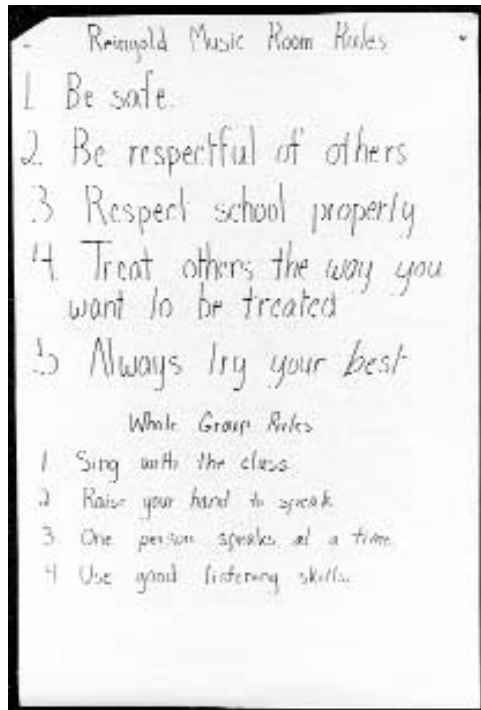 Reingold Music Room Rules
1 Be safe.
2. Be respectful of others
3 Respect school property
4 Treat others the way you
want to be treated
5 Always try your best
Whole Group Rules
1 Sing with the class
2 Raise your hand to speak
3 One person speaks at a time
4 Use good listening skills.